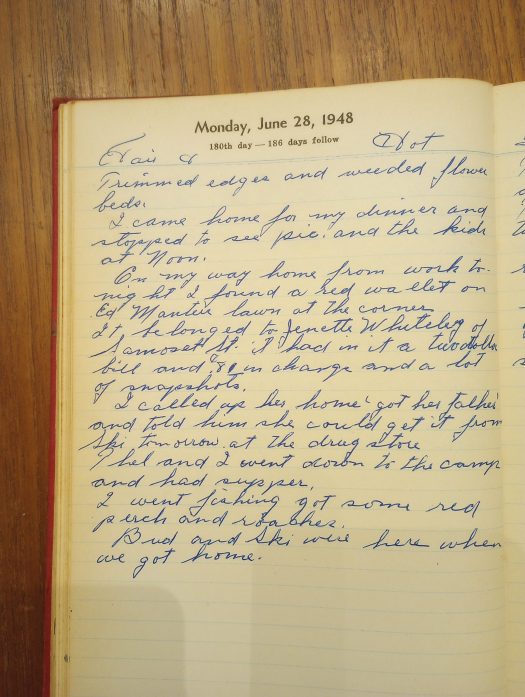 Monday, June 28, 1948
180th day — 186 days follow
Fair & Hot
Trimmed edges and weeded flower
beds.
I came home for my dinner and
stopped to see pic. and the kids
at Noon.
On my way home from work to-
night I found a red wallet on
Ed lawn at the corner
It belonged to Jenette Whiteley of
Samoset St. it had in it a two dollar
bill and .80 in change and a lot
of snapshots.
I called up her home got her father
and told him she could get it from
Ski tomorrow at the drug store
Thel and I went down to the camp
and had supper.
I went fishing got some red
perch and roaches.
Bud and Ski were here when
we got home.